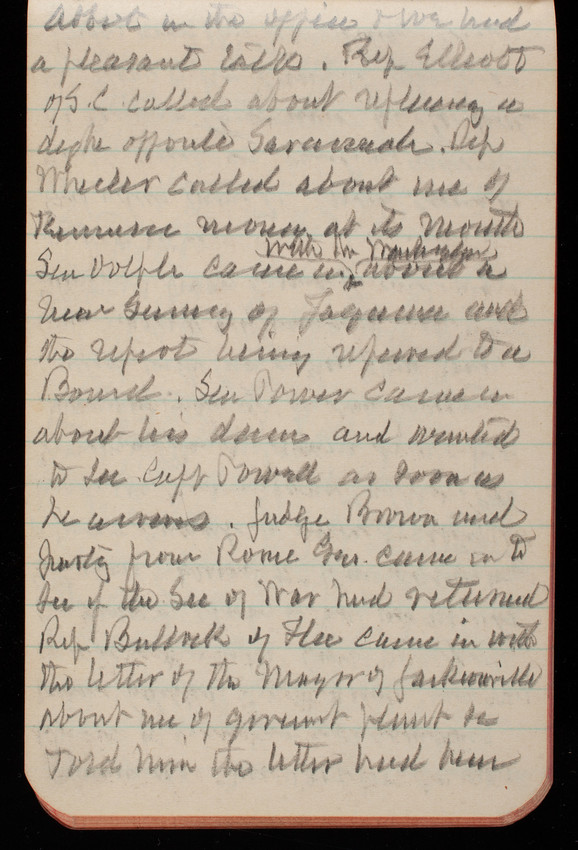 Abbot in the office & we had
a pleasant talk. Rep Elliott
of S.C. called about refusing a
depth opposite Savannah. Rep
Wheeler called about use of
money at its mouth
with Mr Washington
Sen Dolph came in, about a
new Survey of and
the report being referred to a
Board. Sen Power came in
about his dam and wanted
to see Capt Powell as soon as
he arrives. Judge Brown and
party from Rome Geo. came in to
see if the Sec of War had returned
Rep Bullock of Fla came in with
the letter of the Mayor of Jacksonville
about use of plant &
Told him the letter had been